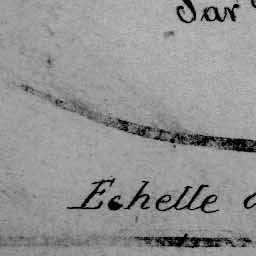 Par
Echelle